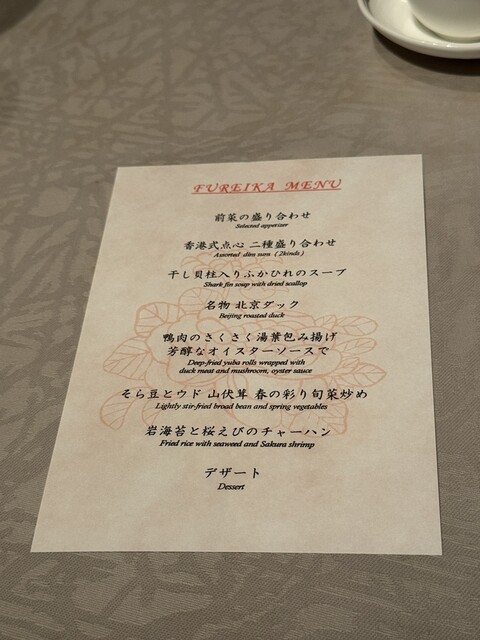 FUREIKA MENU
前菜の盛り合わせ
Selected appetizer
香港式点心 二種盛り合わせ
Assorted dim sum (2kinds)
干し貝柱入りふかひれのスープ
Shark fin soup with dried scallop
名物 北京ダック
Beijing roasted duck
鴨肉のさくさく湯葉包み揚げ
芳醇なオイスターソースで
Deep-fried yuba rolls wrapped with
duck meat and mushroom, oyster sauce
そら豆とウド 山伏茸 春の彩り旬菜炒め
Lightly stir-fried broad bean and spring vegetables
岩海苔と桜えびのチャーハン
Fried rice with seaweed and Sakura shrimp
デザート
Dessert